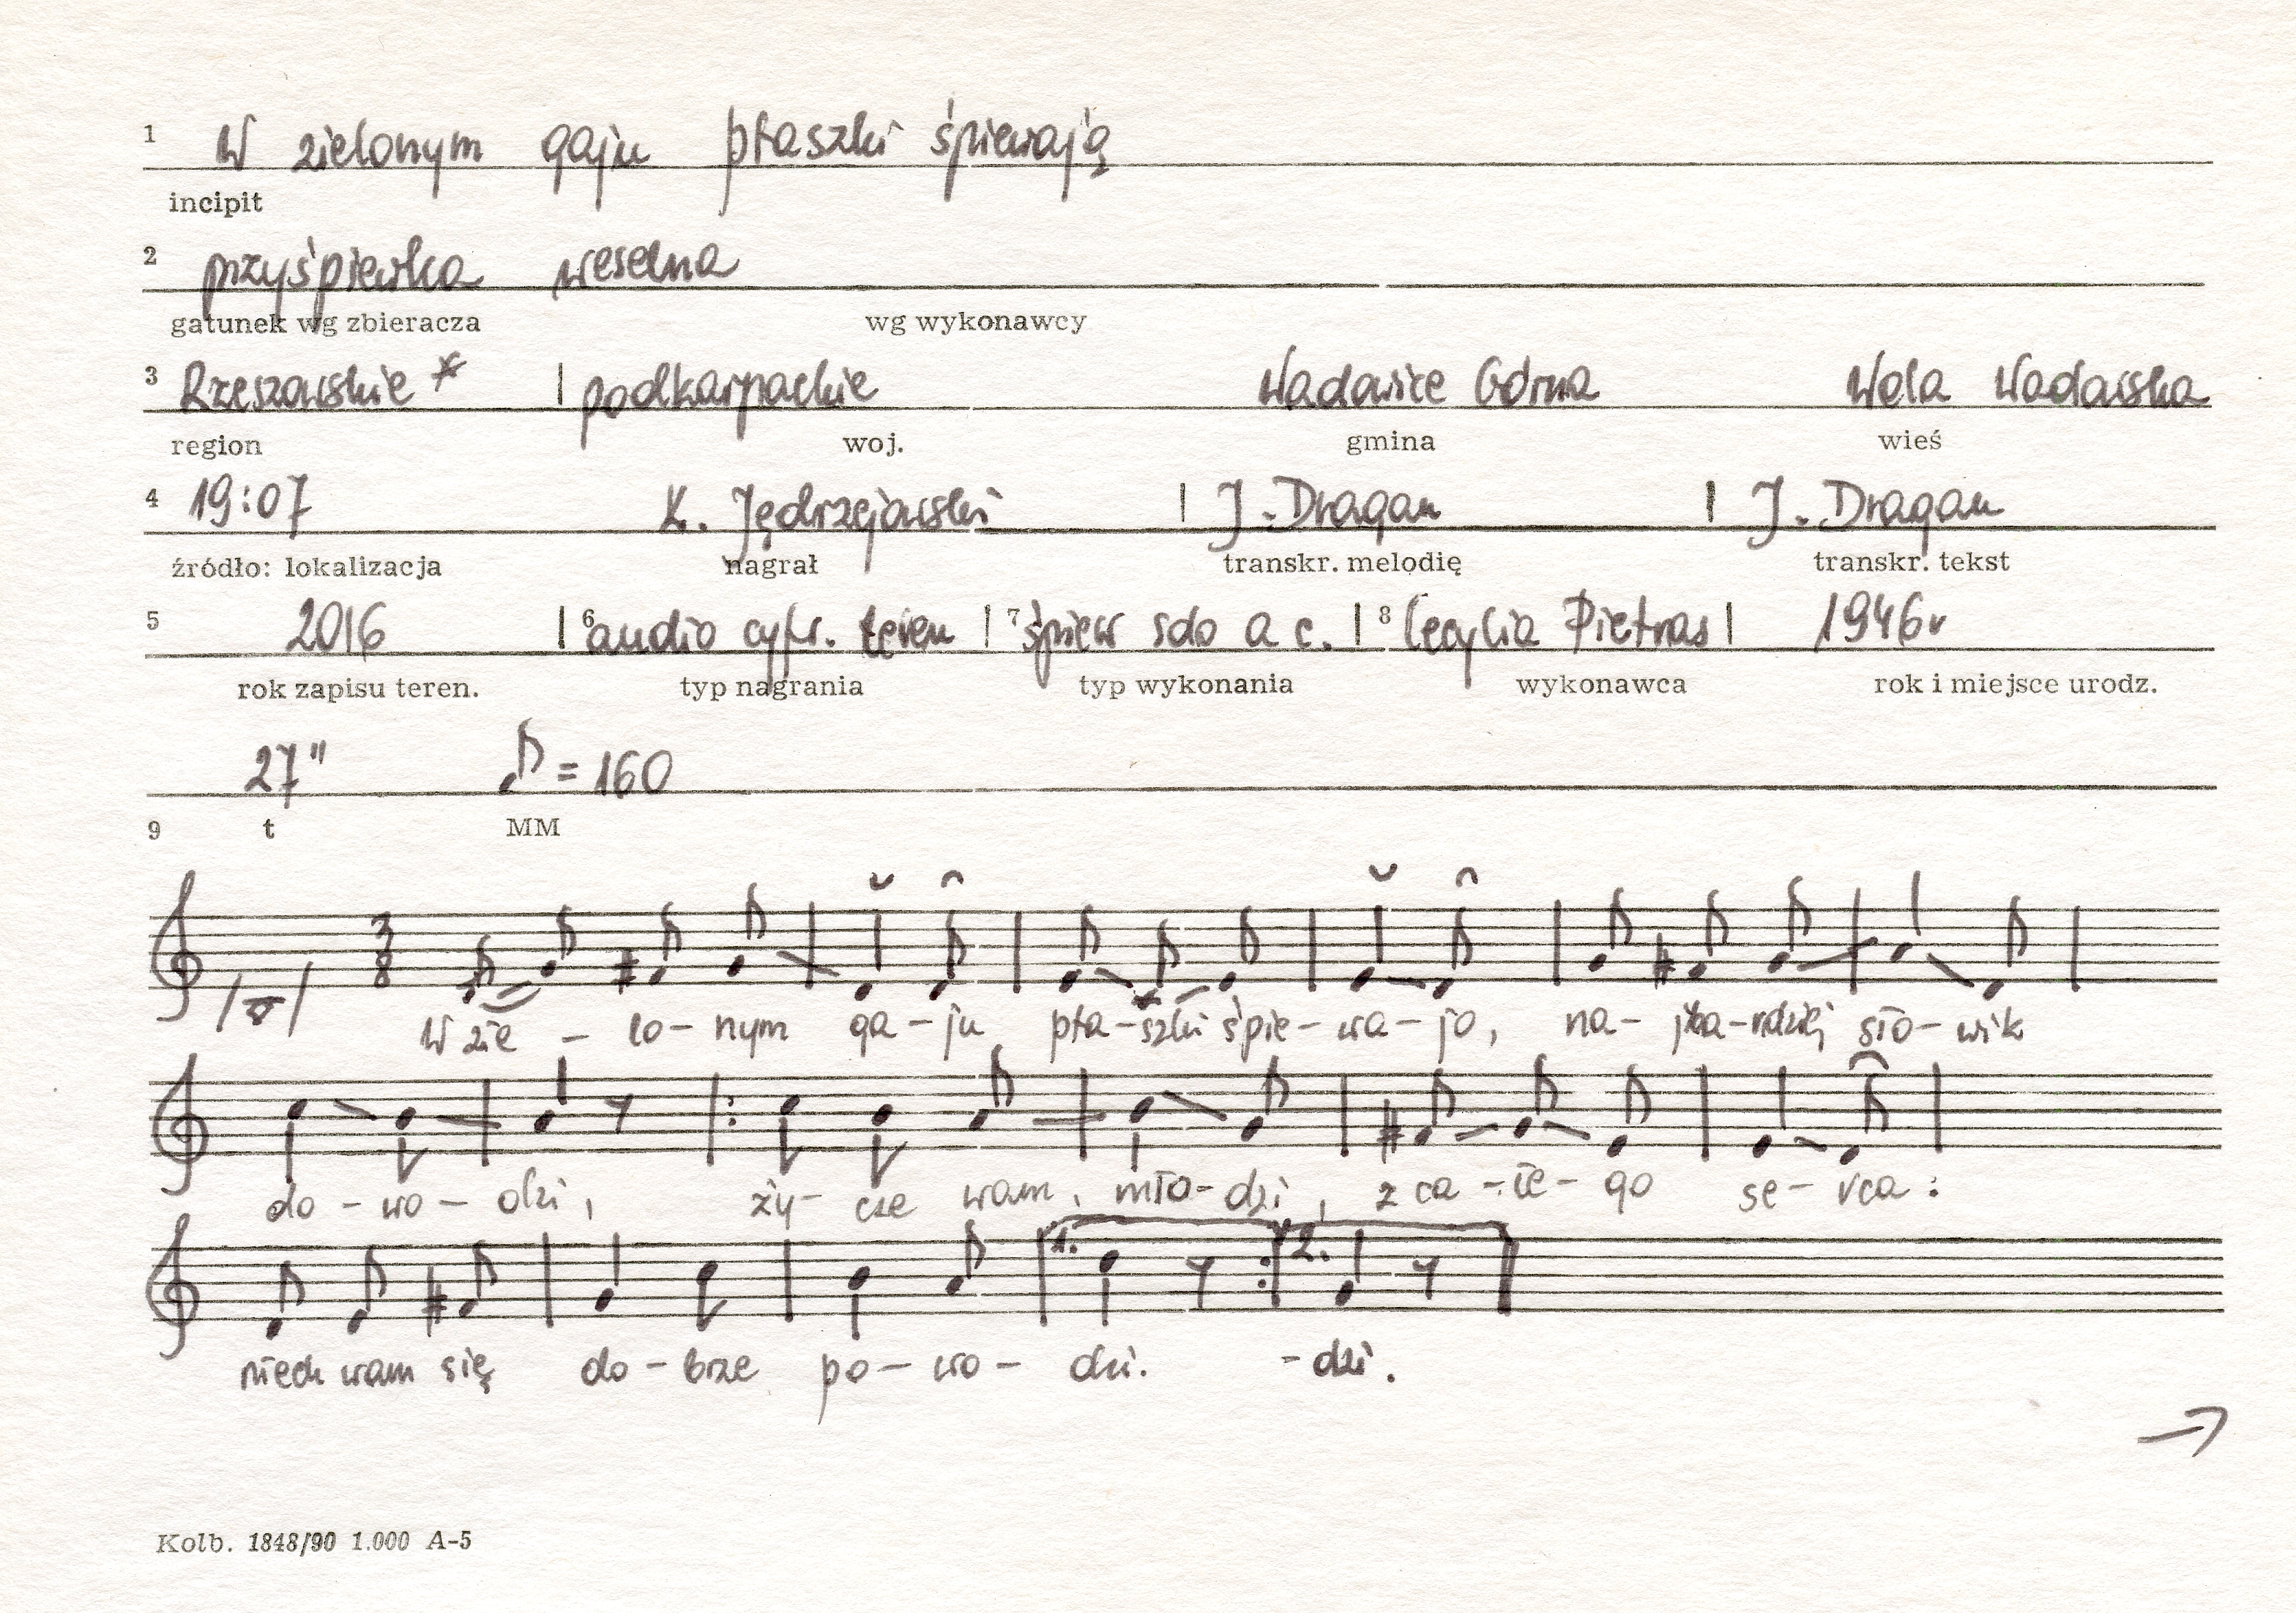 1 W zielonym gaju ptaszki śpiewają
incipit
2 przyśpiewka weselna
gatunek wg zbieracza wg wykonawcy
3 Rzeszowskie * | podkarpackie Wadowice Górne Wola Wadowska
region woj. gmina wieś
4 19:07 K. Jędrzejowski | J. Dragan | J. Dragan
źródło: lokalizacja nagrał transkr. melodię transkr. tekst
5 2016 | 6 audio cyfr. teren | 7 śpiew solo a c. | 8 Cecylia Pietras | 1946r
rok zapisu teren. typ nagrania typ wykonania wykonawca rok i miejsce urodz.
27" ♪ = 160
9 t MM
3
8
W zie – lo – nym ga – ju pta – szki śpie – wa – jo, na – jba – rdziej sło – wik
do – wo – dzi, ży – cze wam, mło – dzi, z ca – łe – go se – rca :
1. 2.
niech wam się do – brze po – wo – dzi. – dzi.
→
Kolb. 1848/90 1.000 A-5